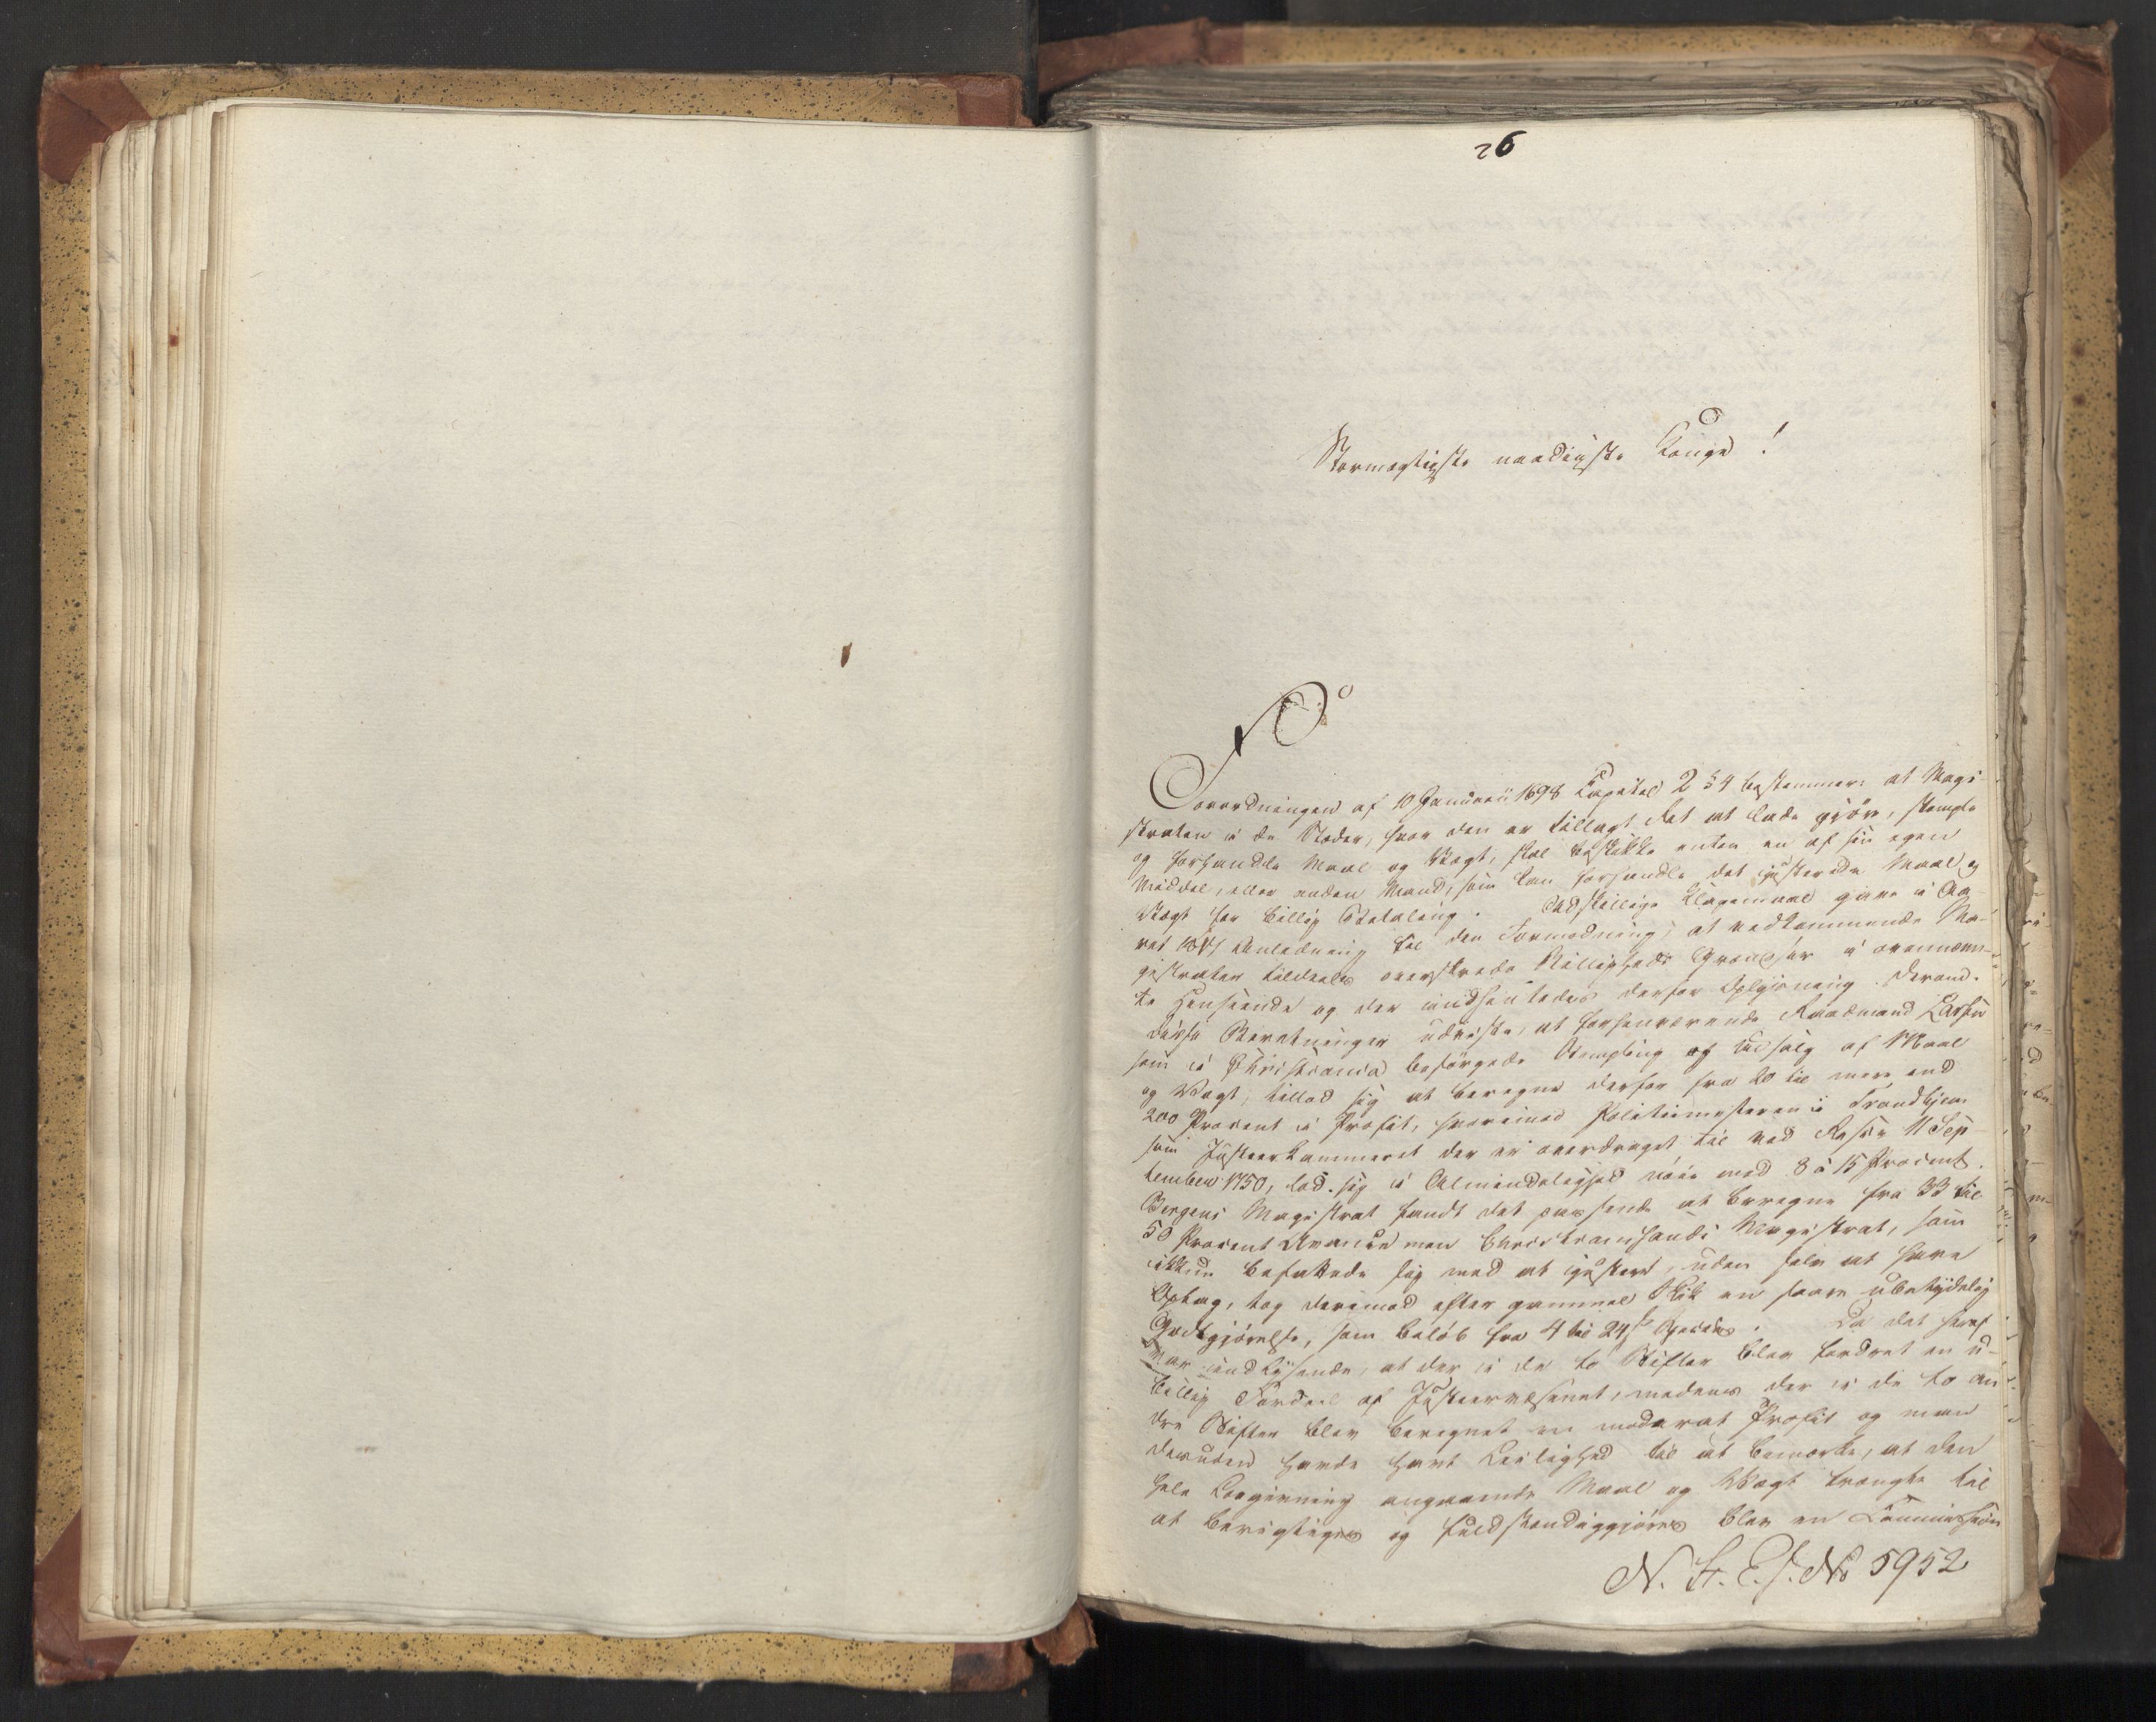 26
Stormægtigste naadigste Konge!
Forordningen af 10 Januarii 1698 Capitel 2 § 4 bestemmer at Magi-
straten i de Stæder, hvor den er tillagt Ret at lade gjöre, stemple
og forhandle Maal og Vægt, skal beskikke enten en af sin egen
Middel, eller anden Mand, som kan forhandle det justerede Maal og
Vægt for billig Betaling. Adskillige Klagemaal gave i Aa-
ret Anledning til den Formodning, at vedkommende Ma-
gistrater tildeels overskrede Billigheds Grændser i ovennævn-
te Henseende og der indhentedes derfor Oplysning. Derom
Beretninger udviste, at forhenværende Raadmand Larsen
som i Christiania besörgede Stempling og Udsalg af Maal
og Vægt, tillod sig at beregne derfor fra 20 til mere end
200 Procent i Profit, hvorimod Politiemesteren i Trondhjem
som Justeerkammeret der er overdraget til ved Rescr. 11 Sep-
tember 1750, lod sig i Almindelighed nöie med 8 à 15 Procent.
Bergens Magistrat fandt det passende at beregne fra 33 til
50 Procent Avance men Christiansands Magistrat, som
ikkun befattede sig med at justere, uden selv at have
Oplag, tog derimod efter gammel Skik en saare ubetydelig
Godtgjörelse, som belöb fra 4 til 24 s Species. Da det heraf
var indlysende, at der i de to Stifter blev fordret en u-
billig Fordeel af Justeervæsenet, medens der i de to an-
dre Stifter blev beregnet en moderat Profit og man
desuden havde havt Leilighed til at bemærke, at den
hele Lovgivning angaaende Maal og Vægt trængte til
at berigtiges og fuldstændiggjöres blev en Commission
N. St. E. f. No 5952